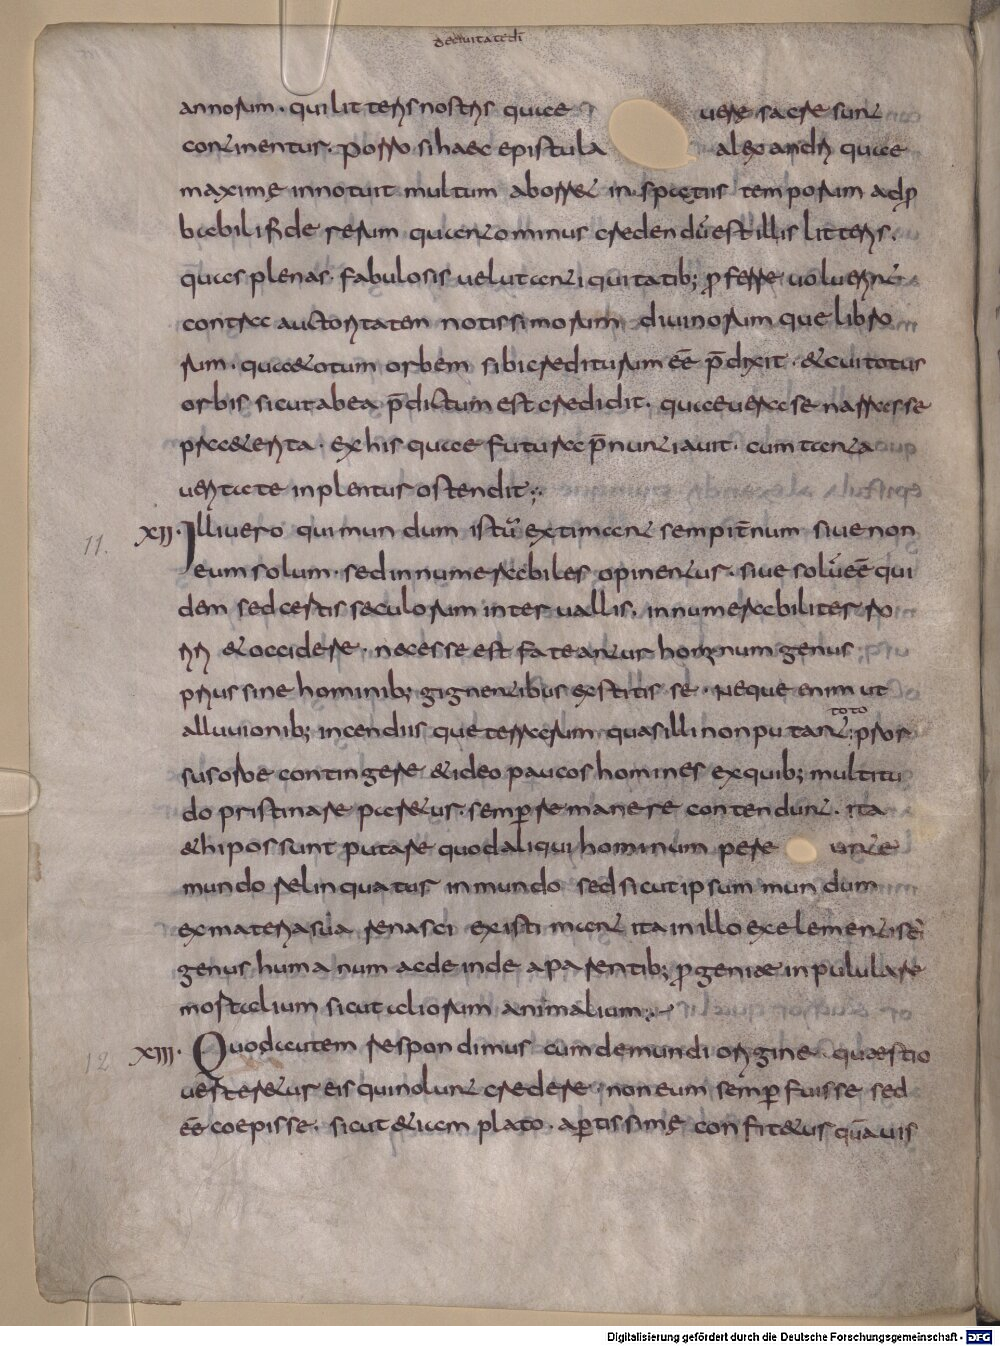 deciuitatedi
annorum · qui litteris nostris quae uere sacre sunt
continentur. porro si haec epistula alexandri quae
maxime innotuit multum aborret in spatiis temporum ad p
babili fide rerum quanto minus credendū est illis litteris.
quas plenas fabulosis uelut antiquitatib; pferre uoluerint
contra auctoritatem notissimorum diuinorum que libro
rum · quae totum orbem sibi crediturum eē p̄dixit · & cui totus
orbis sicut ab ea p̄dictum est credidit · quae uera se narrasse
praeterita · ex his quae futura p̄nuntiauit · cum tanta
ueritate inplentur ostendit;.
XII · Illi uero qui mundum istū extimant sempit̄num siue non
eum solum · sed innumerabiles opinentur · siue solū eē qui
dem sed certis saeculorum interuallis · innumerabiliter so
riri & occidere · necesse est fateantur hominum genus
prius sine hominib; gignentibus exstitisse · neque enim ut
alluuionib; incendiisque terrarum quas illi non putant toto pror
sus orbe contingere & ideo paucos homines ex quib; multitu
do pristina reparetur · semper remanere contendunt · ita
& hi possunt putare quod aliqui hominum pereunte
mundo relinquatur in mundo sed sicut ipsum mundum
ex materia sua renasci existimant ita in illo ex elementis ei
genus humanum ac deinde a parentib; pgeniae inpululare
mortalium sicut aliorum animalium;.
11.
XIII · Quod autem respondimus cum de mundi origine · quaestio
uerteretur eis qui nolunt credere · non eum semp fuisse sed
eē coepisse · sicut etiam plato · apertissime confitetur quāuis
12
Digitalisierung gefördert durch die Deutsche Forschungsgemeinschaft - DFG